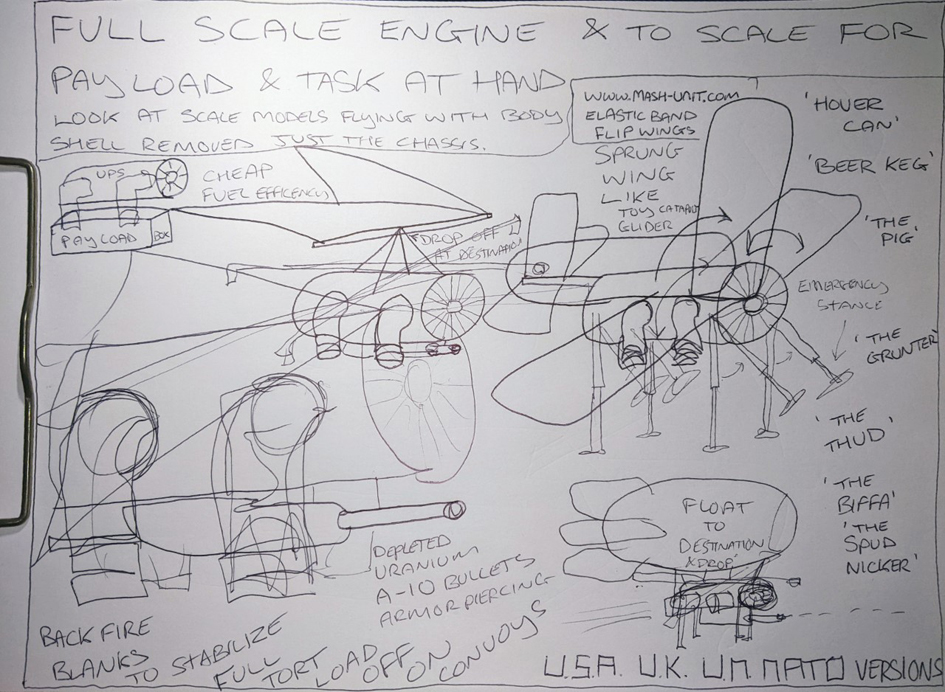 FULL SCALE ENGINE & TO SCALE FOR
PAYLOAD & TASK AT HAND
LOOK AT SCALE MODELS FLYING WITH BODY
SHELL REMOVED JUST THE CHASSIS.
WWW.MASH-UNIT.COM
ELASTIC BAND
FLIP WINGS
SPRUNG
WING
LIKE
TOY CATAPULT
GLIDER
'HOVER
CAN'
'BEER KEG'
'THE
PIG'
EMERGENCY
STANCE
'THE
GRUNTER'
'THE
THUD'
'THE
BIFFA'
'THE
SPUD
NICKER'
UPS
PAYLOAD
BOX
CHEAP
FUEL EFFICENCY
DROP OFF
AT DESTINATION
FLOAT
TO
DESTINATION
& DROP
DEPLETED
URANIUM
A-10 BULLETS
ARMOR PIERCING
BACK FIRE
BLANKS
TO STABILIZE
FULL
TORT LOAD
OFF ON
CONVOYS
U.S.A. U.K. U.N. NATO VERSIONS